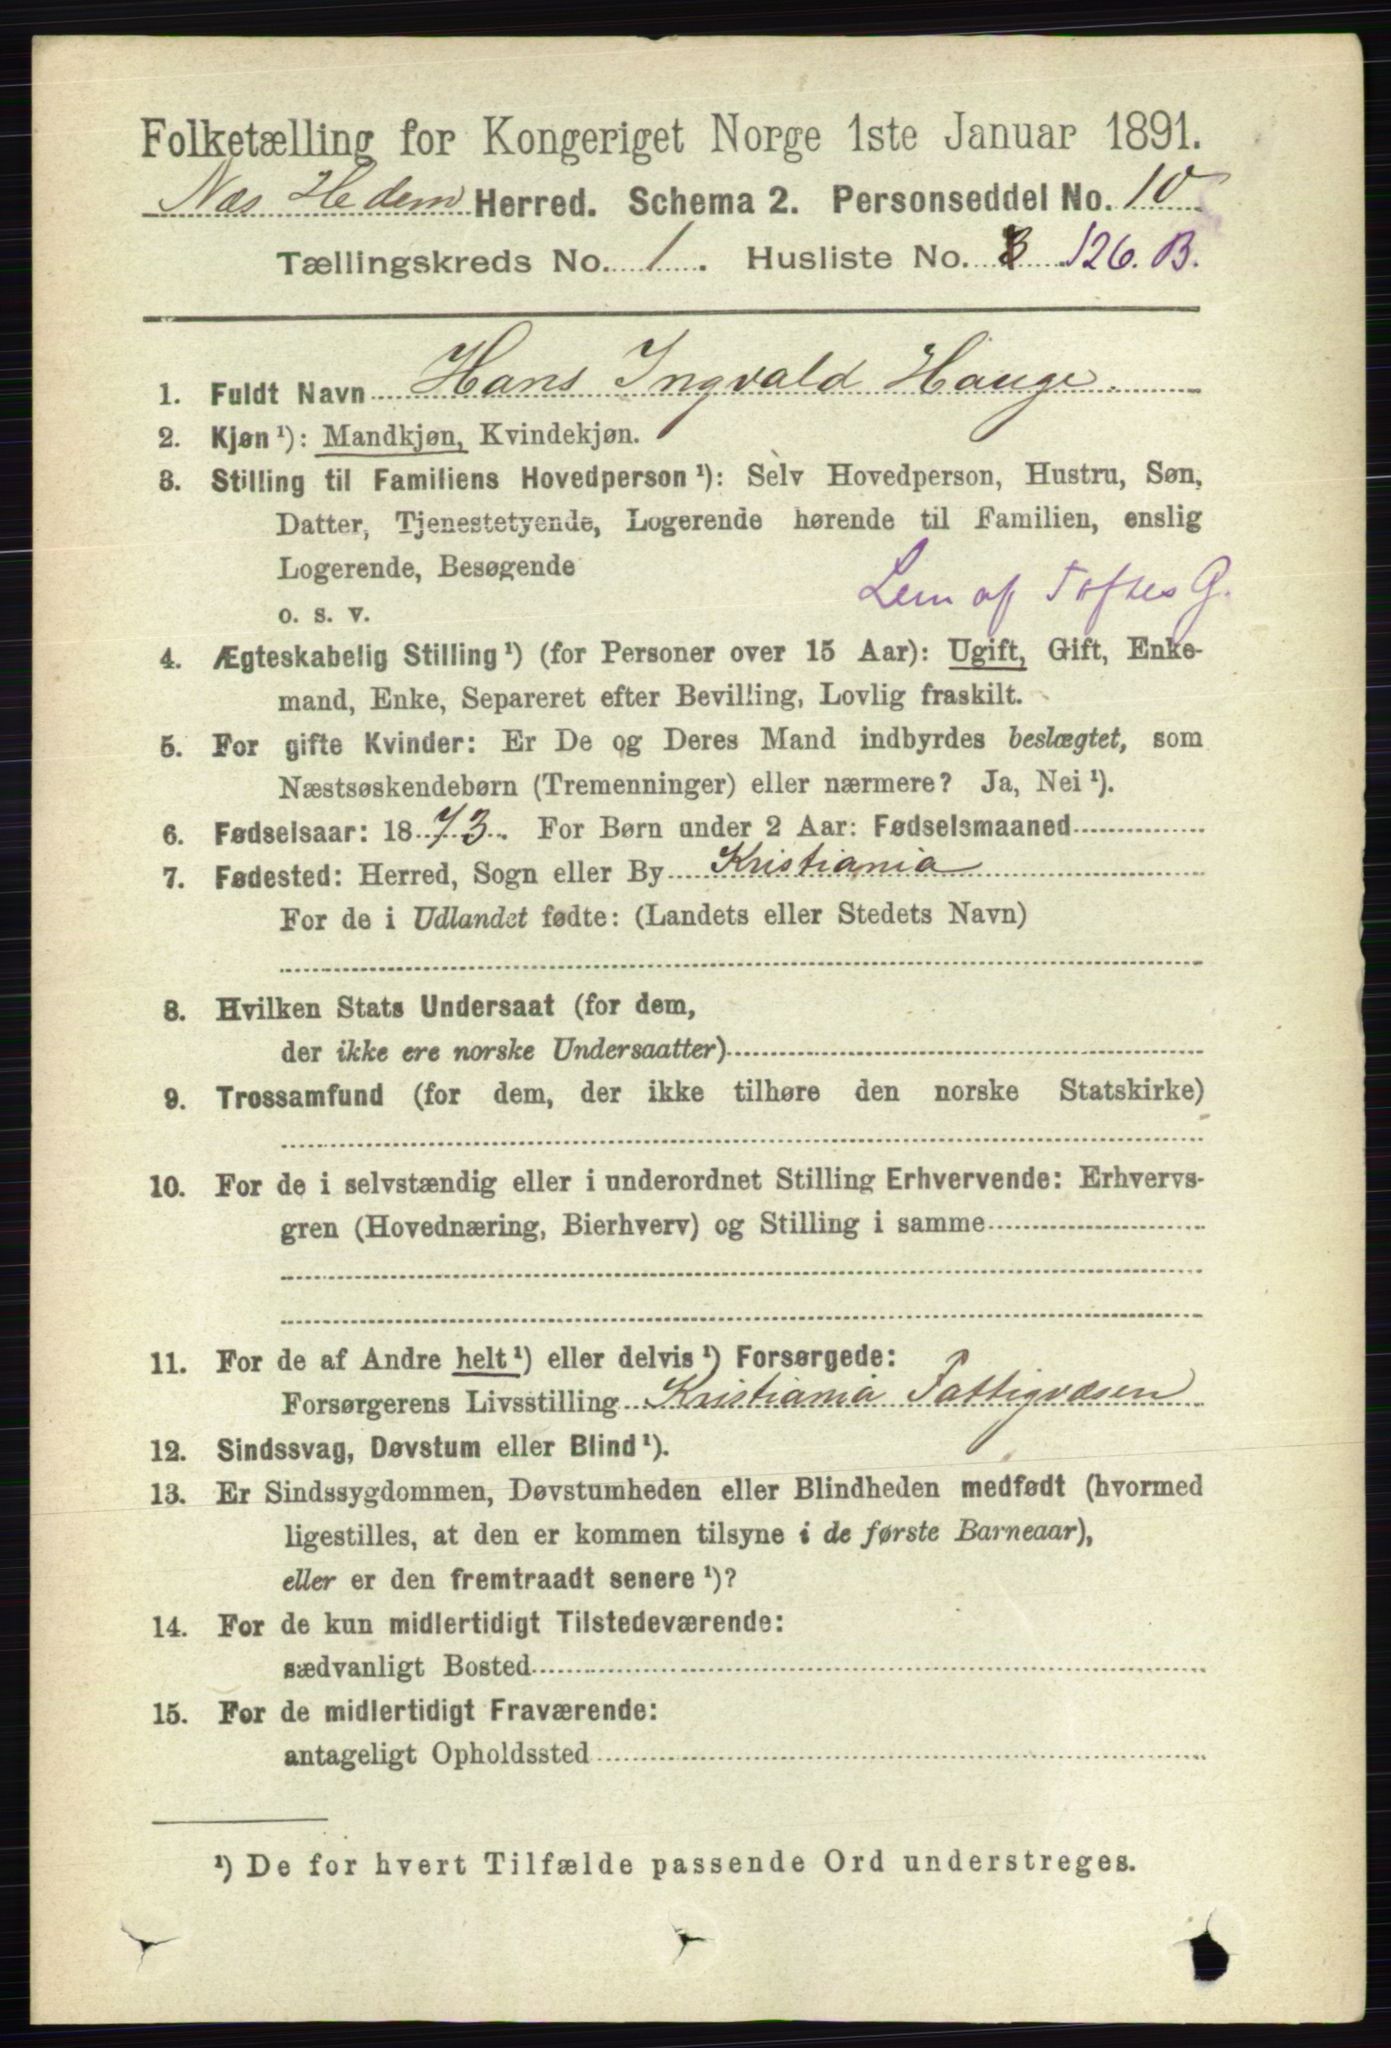 Folketælling for Kongeriget Norge 1ste Januar 1891.
Næs Hedem Herred. Schema 2. Personseddel No. 10
Tællingskreds No. 1. Husliste No. 126. B.
1. Fuldt Navn Hans Ingvald Hauge.
2. Kjøn ¹): Mandkjøn, Kvindekjøn.
3. Stilling til Familiens Hovedperson ¹): Selv Hovedperson, Hustru, Søn,
Datter, Tjenestetyende, Logerende hørende til Familien, enslig
Logerende, Besøgende
o. s. v. Lem af Toftes G.
4. Ægteskabelig Stilling ¹) (for Personer over 15 Aar): Ugift, Gift, Enke-
mand, Enke, Separeret efter Bevilling, Lovlig fraskilt.
5. For gifte Kvinder: Er De og Deres Mand indbyrdes beslægtet, som
Næstsøskendebørn (Tremenninger) eller nærmere? Ja, Nei ¹).
6. Fødselsaar: 1873. For Børn under 2 Aar: Fødselsmaaned
7. Fødested: Herred, Sogn eller By Kristiania
For de i Udlandet fødte: (Landets eller Stedets Navn)
8. Hvilken Stats Undersaat (for dem,
der ikke ere norske Undersaatter)
9. Trossamfund (for dem, der ikke tilhøre den norske Statskirke)
10. For de i selvstændig eller i underordnet Stilling Erhvervende: Erhvervs-
gren (Hovednæring, Bierhverv) og Stilling i samme
11. For de af Andre helt ¹) eller delvis ¹) Forsørgede:
Forsørgerens Livsstilling Kristiania Fattigvæsen
12. Sindssvag, Døvstum eller Blind ¹).
13. Er Sindssygdommen, Døvstumheden eller Blindheden medfødt (hvormed
ligestilles, at den er kommen tilsyne i de første Barneaar),
eller er den fremtraadt senere ¹)?
14. For de kun midlertidigt Tilstedeværende:
sædvanligt Bosted
15. For de midlertidigt Fraværende:
antageligt Opholdssted
¹) De for hvert Tilfælde passende Ord understreges.